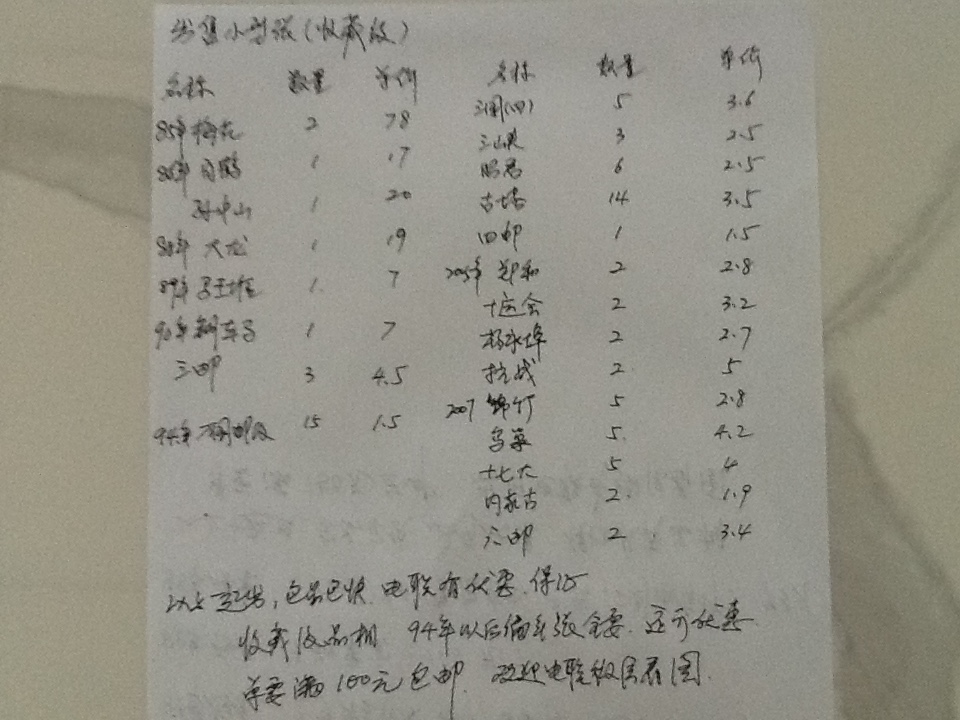 出售小型张(收藏级)
名称 数量 单价
85年梅花 2 78
86年白鹤 1 17
孙中山 1 20
88年大龙 1 19
89年马王堆 1 7
90年铜车马 1 7
三邮 3 4.5
94年 15 1.5
名称 数量 单价
三国(四) 5 3.6
三峡 3 2.5
昭君 6 2.5
古塔 14 3.5
四邮 1 1.5
205年郑和 2 2.8
十运会 2 3.2
杨永埠 2 2.7
抗战 2 5
207 绵竹 5 2.8
乌菜 5 4.2
十七大 5 4
内蒙古 2 1.9
六邮 2 3.4
以上 电联有优惠.保证
收藏级品相 94年以后编年张全要.还可优惠
单要满100元包邮.欢迎电联 看图.